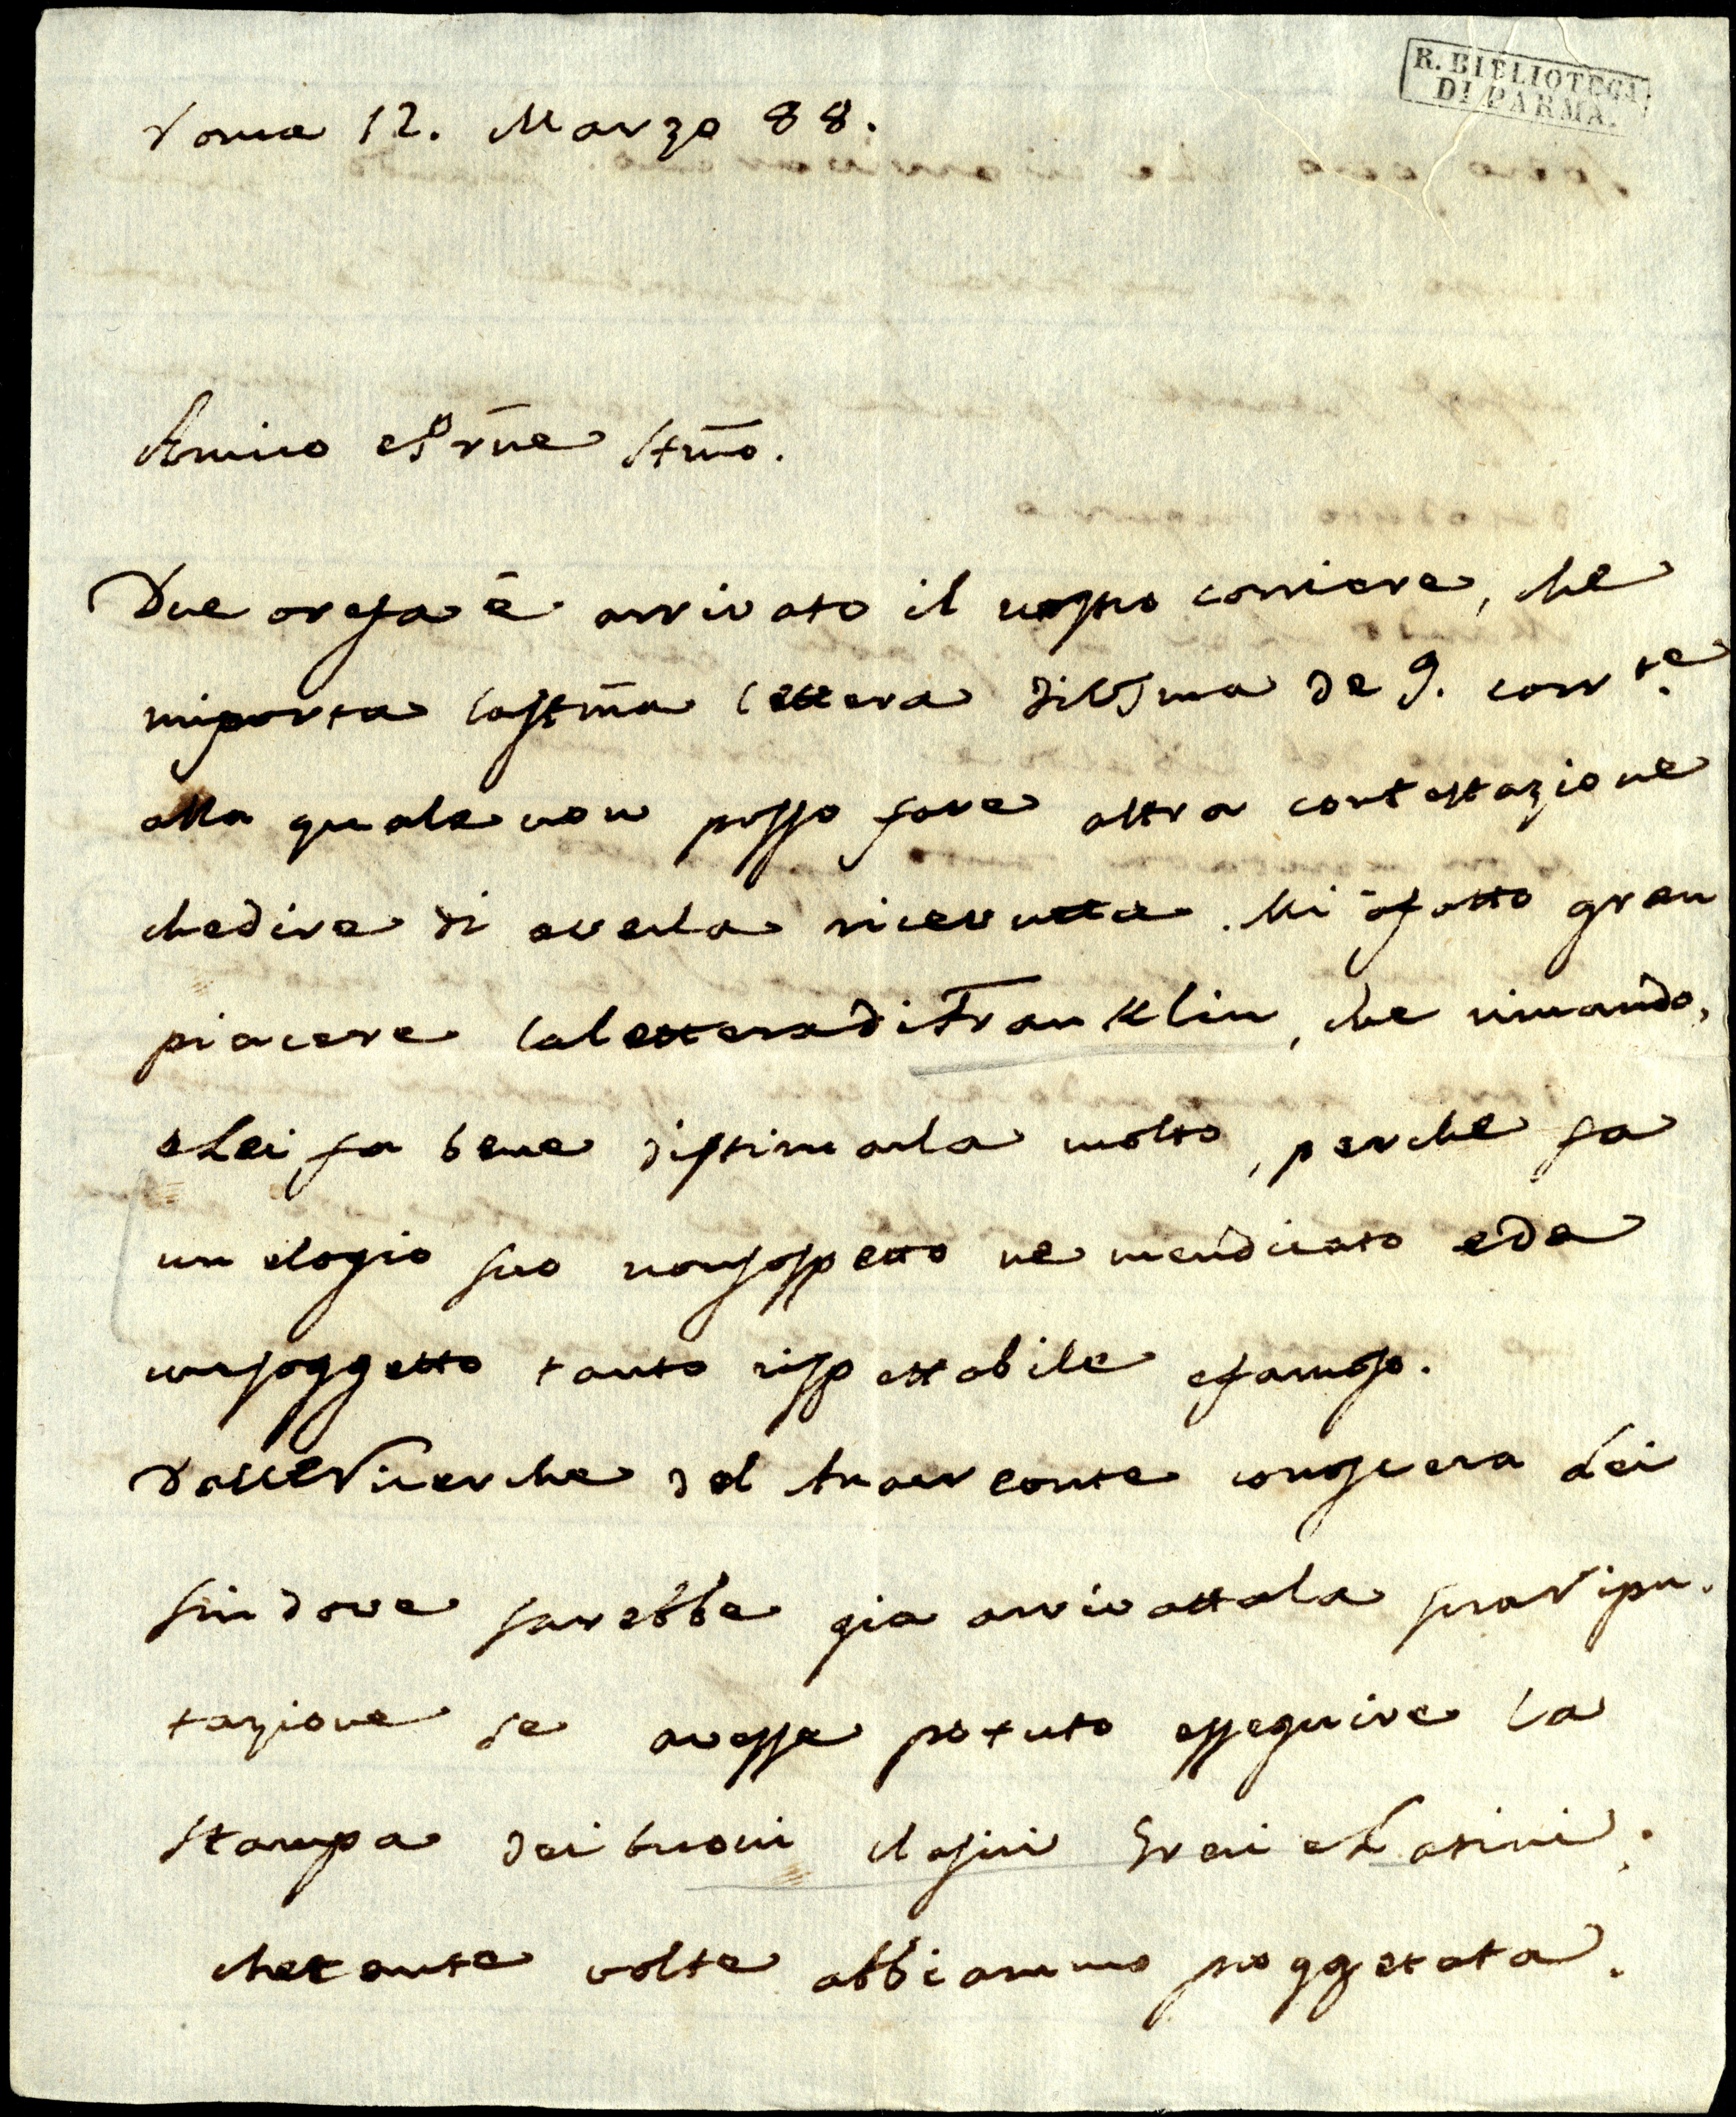 R. BIBLIOTECA
DI PARMA.
Roma 12. Marzo 88.
Amico e Prñe Stm̃o.
Due ore fa è arrivato il vostro corriere, che
mi porta la stm̃a lettera di VSma de 9. corrte.
alla quale non posso fare altra contestazione
che dire di averla ricevutta. Mi à fatto gran
piacere la lettera di Franklin, che rimando,
e Lei fa bene di stimarla molto, perche fa
un elogio suo non sospetto ne mendicato e da
un soggetto tanto rispettabile e famoso.
Dalle Ricerche del Anacreonte conoscera Lei
fin dove sarebbe gia arrivatta la sua ripu-
tazione se avesse potuto esseguire la
stampa dei buoni clasici Greci e Latini,
che tante volte abbiammo proggettata.